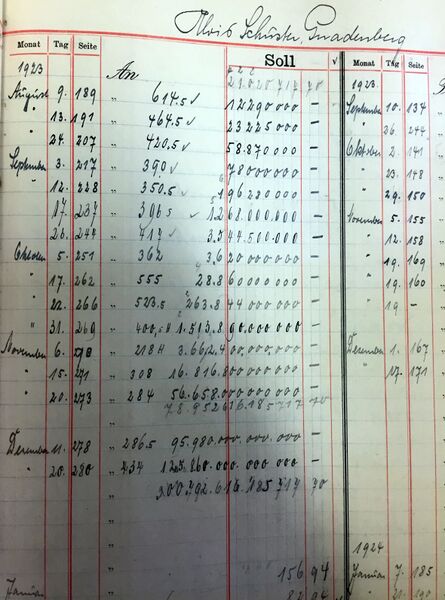 Alois Schuster, Gnadenberg
Monat Tag Seite Soll √ Monat Tag Seite
1923 An 21.020.717 70 1923
August 9. 189 " 614.5 √ 12290000 — September 10. 134
" 13. 191 " 464.5 √ 23225000 — " 26. 244
" 24. 207 " 420.5 √ 58.870000 — Oktober 2. 141
September 3. 217 " 390 √ 78000000 — " 23. 148
" 12. 228 " 350.5 √ 196280000 — " 29. 150
" 17. 237 " 306.5 √ 1.268.000.000 — November 5. 155
" 26. 244 " 717 √ 3.544.500.000 — " 12. 158
Oktober 5. 251 " 362 3.620000000 — " 19. 169
" 17. 262 " 555 28.860000000 — " 19. 160
" 22. 266 " 523.5 263.844000000 — " 19 —
" 31. 269 " 1.513.890000000 —
November 6. 270 " 218 3.662.400.000.000 — Dezember 1. 167
" 15. 271 " 308 16.816.800000000 — " 17. 171
" 20. 273 " 284 56.658.000000000 —
78.952616.185717 70
Dezember 11. 278 " 286.5 95.980.000.000.000 —
" 20. 280 " 434 125.860.000.000.000 —
300.792.616.185717 70
1924
156 94 Januar 7. 185
Januar 82 94 " 21. 190